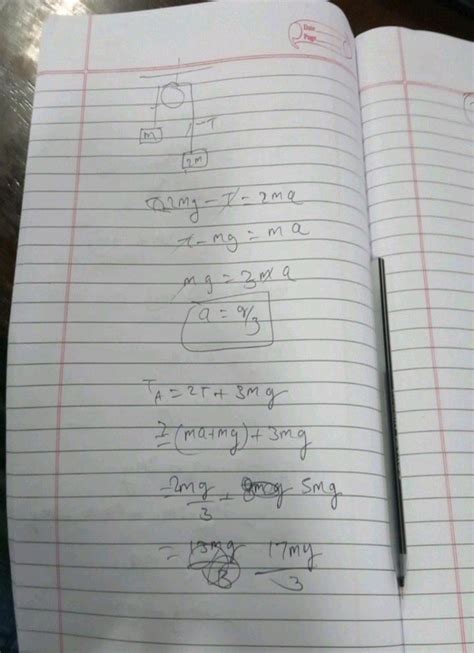 Date
Page
m
T
2m
2mg - T = 2ma
T - mg = ma
mg = 3ma
a = g/3
T_A = 2T + 3mg
= 2(ma+mg) + 3mg
= 2mg/3 + 5mg
= 17mg/3